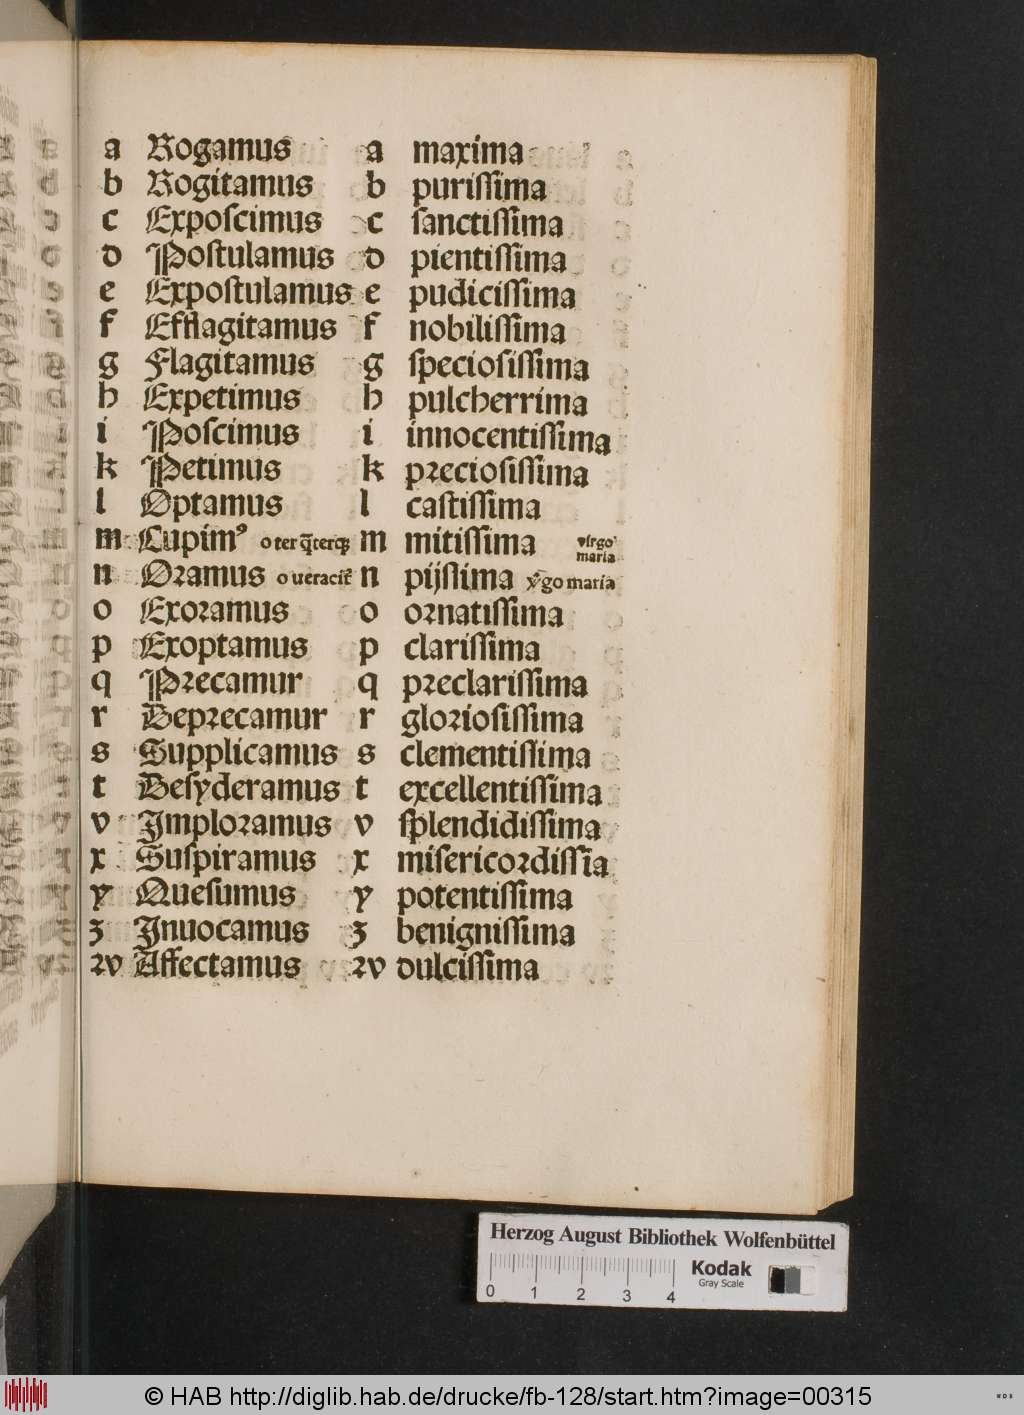 a Rogamus a maxima
b Rogitamus b purissima
c Exposcimus c sanctissima
d Postulamus d pientissima
e Expostulamus e pudicissima
f Efflagitamus f nobilissima
g Flagitamus g speciosissima
h Expetimus h pulcherrima
i Poscimus i innocentissima
k Petimus k preciosissima
l Optamus l castissima
m Cupimꝰ o ter q̃terqꝫ m mitissima virgo maria
n Oramus o ueracit̃ n pijssima v̾go maria
o Exoramus o ornatissima
p Exoptamus p clarissima
q Precamur q preclarissima
r Deprecamur r gloriosissima
s Supplicamus s clementissima
t Desyderamus t excellentissima
v Imploramus v splendidissima
x Suspiramus x misericordissīa
y Quesumus y potentissima
z Inuocamus z benignissima
ꝛv Affectamus ꝛv dulcissima
Herzog August Bibliothek Wolfenbüttel
Kodak
Gray Scale
0 1 2 3 4
© HAB http://diglib.hab.de/drucke/fb-128/start.htm?image=00315